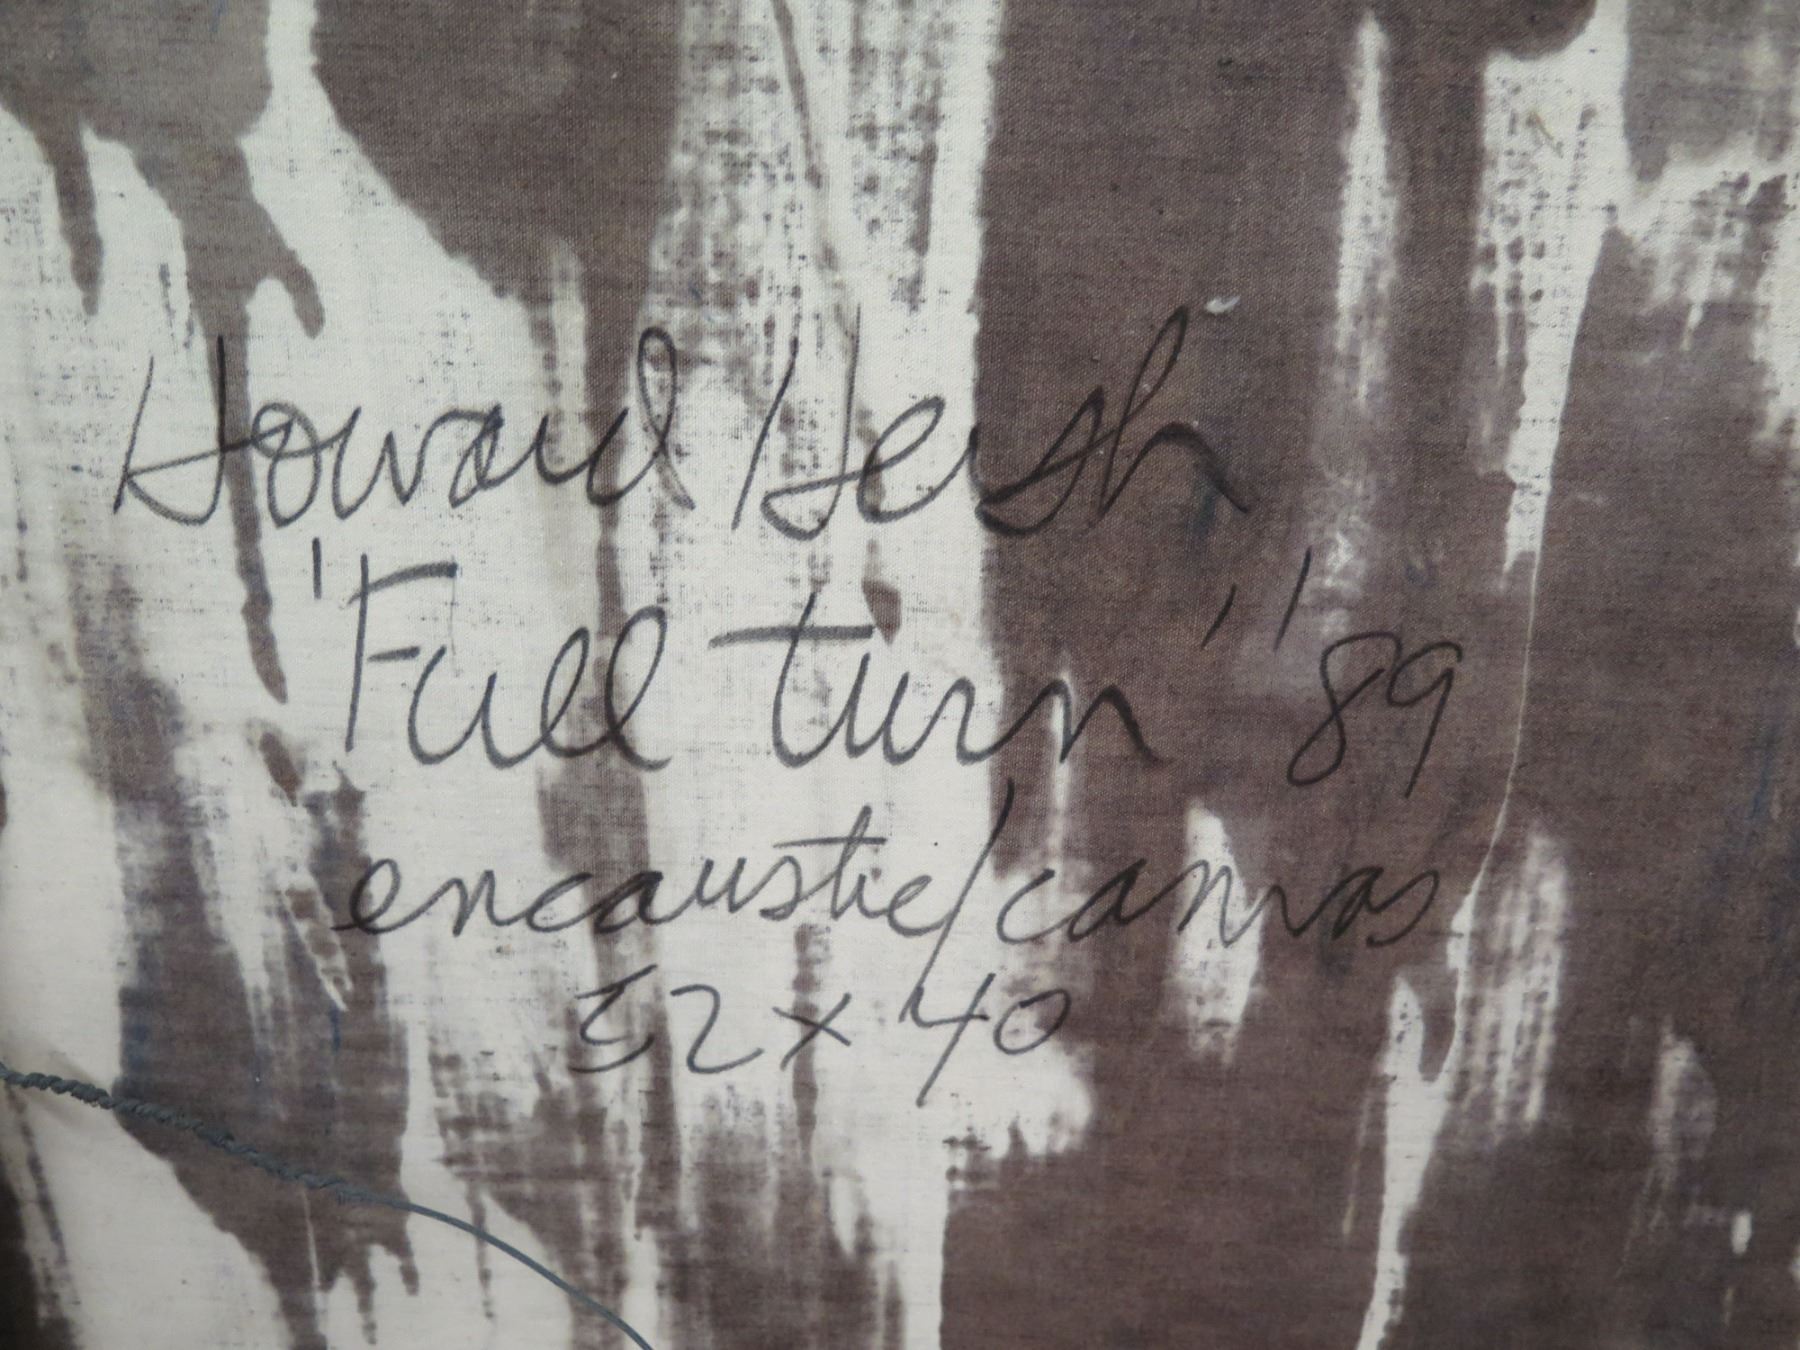 Howard Hersh
'Full turn" '89
encaustic/canvas
52 x 40